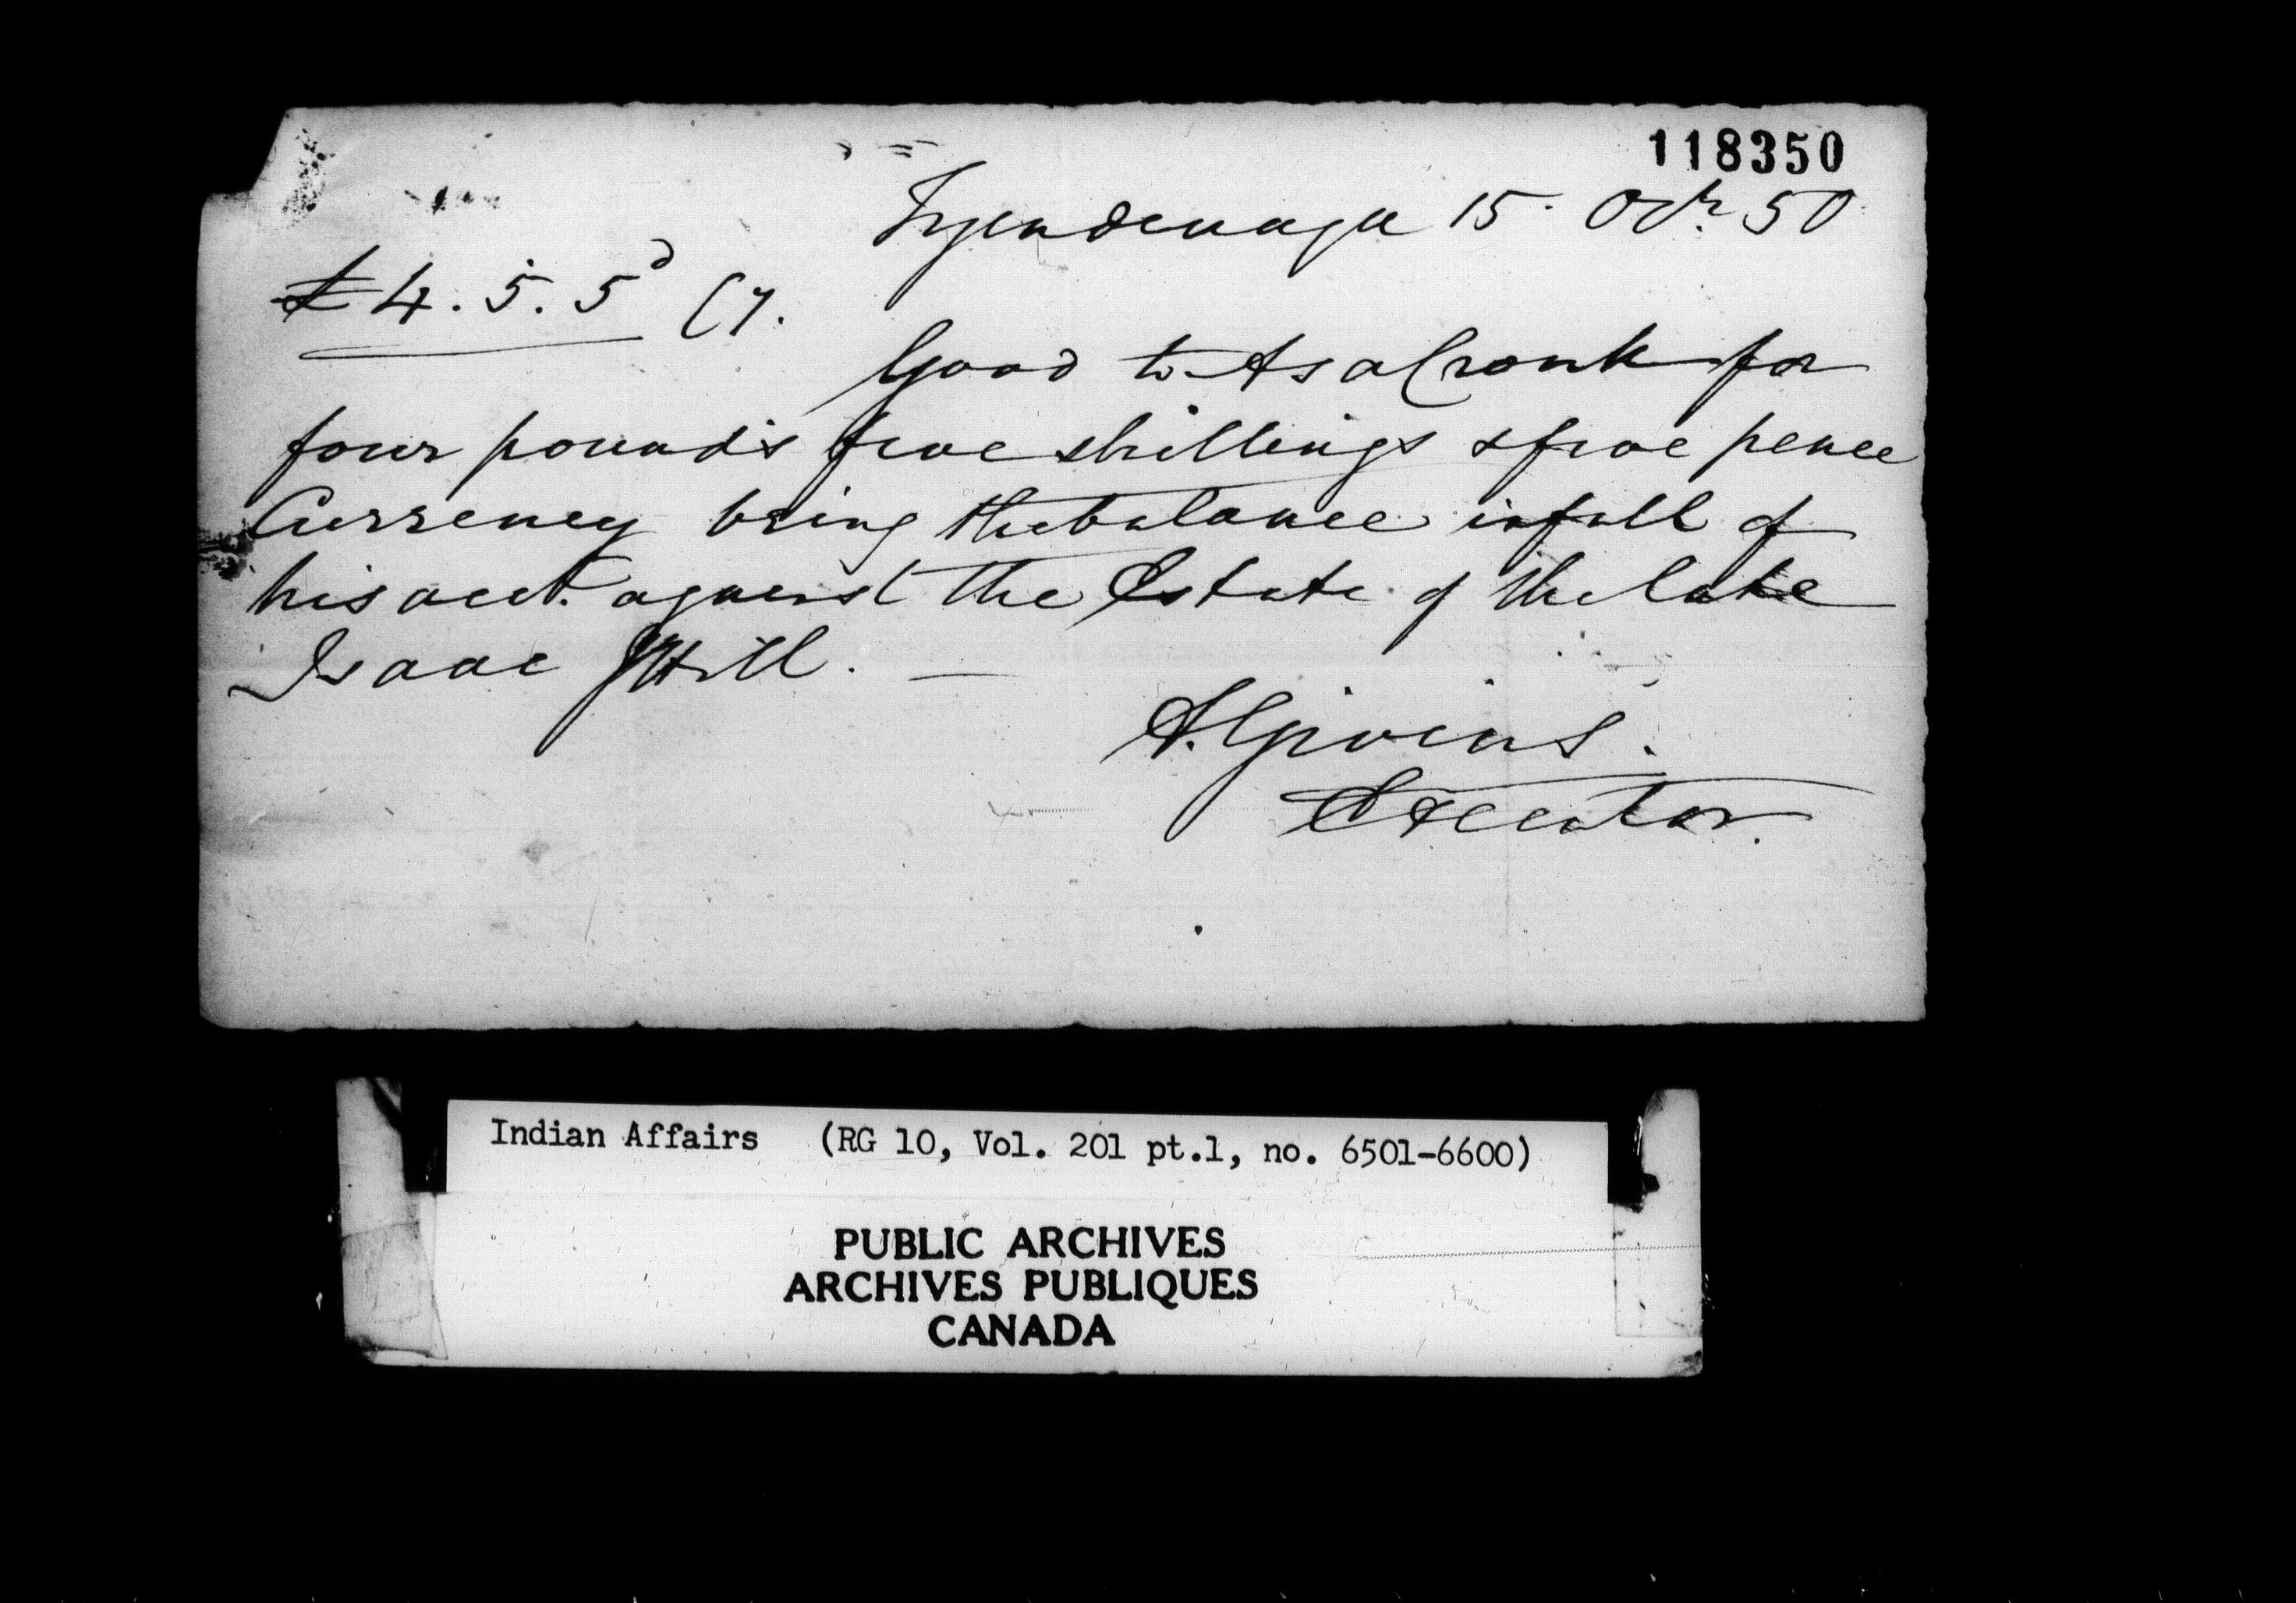 118350
Tyendenaga 15. Octr. 50
£4.5.5d Cy.
Good to Asa Cronk for
four pounds five shillings & five pence
Currency being the balance in full of
his acct. against the Estate of the late
Isaac Hill. —
S. Givins.
Executor.
Indian Affairs (RG 10, Vol. 201 pt.1, no. 6501-6600)
PUBLIC ARCHIVES
ARCHIVES PUBLIQUES
CANADA